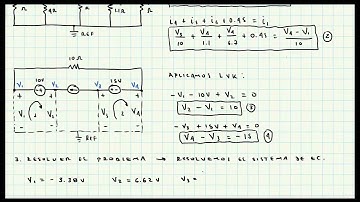 Ω 4Ω Ω 1.1Ω Ω
REF
i4 + i2 + i3 + 0.45 = i1
V2/10 + V3/1.1 + V4/6.2 + 0.45 = (V4 - V1)/10 ②
10Ω
V1 10V V2 V3 15V V4
+ + + +
V1 V2 V3 V4
- - - -
REF
APLICAMOS LVK:
-V1 - 10V + V2 = 0
V2 - V1 = 10 ③
-V3 + 15V + V4 = 0
V4 - V3 = -15 ④
3. RESOLVER EL PROBLEMA → RESOLVEMOS EL SISTEMA DE EC.
V1 = -3.38V V2 = 6.62V V3 =